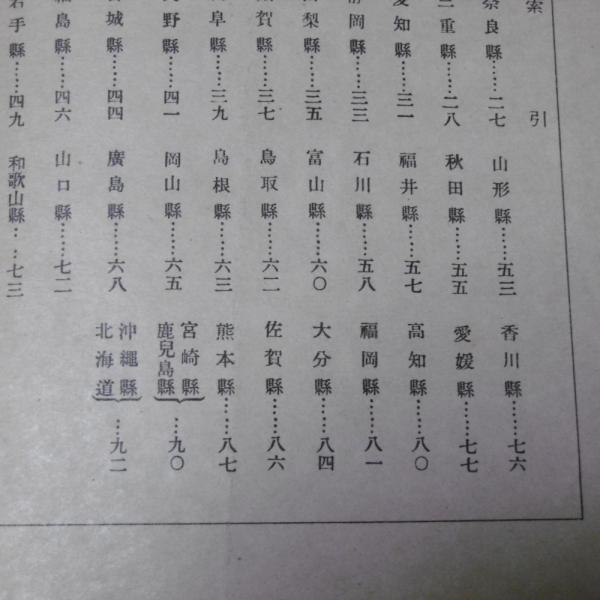 索引
奈良縣……二七
三重縣……二八
愛知縣……三一
靜岡縣……三三
山梨縣……三五
滋賀縣……三七
岐阜縣……三九
長野縣……四一
宮城縣……四四
福島縣……四六
岩手縣……四九
山形縣……五三
秋田縣……五五
福井縣……五七
石川縣……五八
富山縣……六〇
鳥取縣……六二
島根縣……六三
岡山縣……六五
廣島縣……六八
山口縣……七二
和歌山縣……七三
香川縣……七六
愛媛縣……七七
高知縣……八〇
福岡縣……八一
大分縣……八四
佐賀縣……八六
熊本縣……八七
宮崎縣
鹿兒島縣……九〇
沖繩縣
北海道……九二